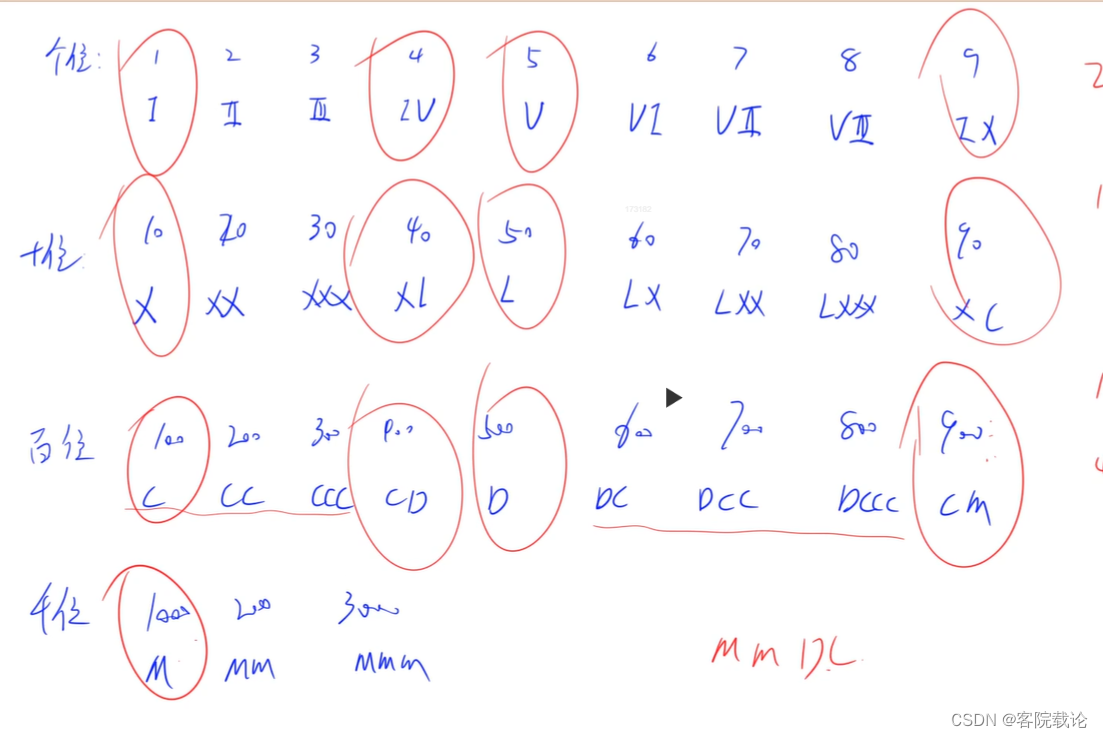 个位: 1 2 3 4 5 6 7 8 9
I II III IV V VI VII VIII IX
十位: 10 20 30 40 50 60 70 80 90
X XX XXX XL L LX LXX LXXX XC
百位 100 200 300 400 500 600 700 800 900
C CC CCC CD D DC DCC DCCC CM
千位 1000 2000 3000
M MM MMM
MMDC
CSDN @客院载论